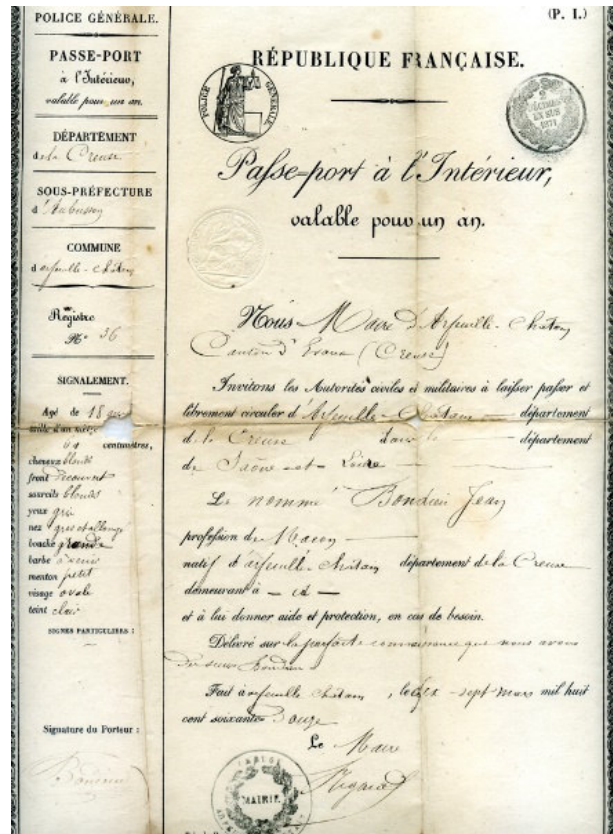 POLICE GÉNÉRALE.
PASSE-PORT
à l'Intérieur,
valable pour un an.
DÉPARTEMENT
de la Creuse
SOUS-PRÉFECTURE
d'Aubusson
COMMUNE
d'arfeuille-châtain
Registre
N° 36
SIGNALEMENT.
Agé de 18 ans
taille d'un mètre
64 centimètres,
cheveux blonds
front découvert
sourcils blonds
yeux gris
nez gros et allongé
bouche grande
barbe
menton petit
visage ovale
teint clair
SIGNES PARTICULIERS :
Signature du Porteur :
(P. I.)
RÉPUBLIQUE FRANÇAISE.
POLICE GÉNÉRALE
2 DÉCIMES EN SUS 1871
Passe-port à l'Intérieur,
valable pour un an.
Nous Maire d'Arfeuille-Chatain
Canton d'Evaux (Creuse)
Invitons les Autorités civiles et militaires à laisser passer et
librement circuler d'Arfeuille-Châtain département
de la Creuse dans le département
de Saône-et-Loire
Le nommé Bondieu Jean
profession de Maçon
natif d'arfeuille-châtain département de la Creuse
demeurant à - id -
et à lui donner aide et protection, en cas de besoin.
Délivré sur la parfaite connaissance que nous avons
du sieur Bondieu
Fait à arfeuille châtain, le dix-sept mars mil huit
cent soixante-Douze
Le Maire
MAIRIE